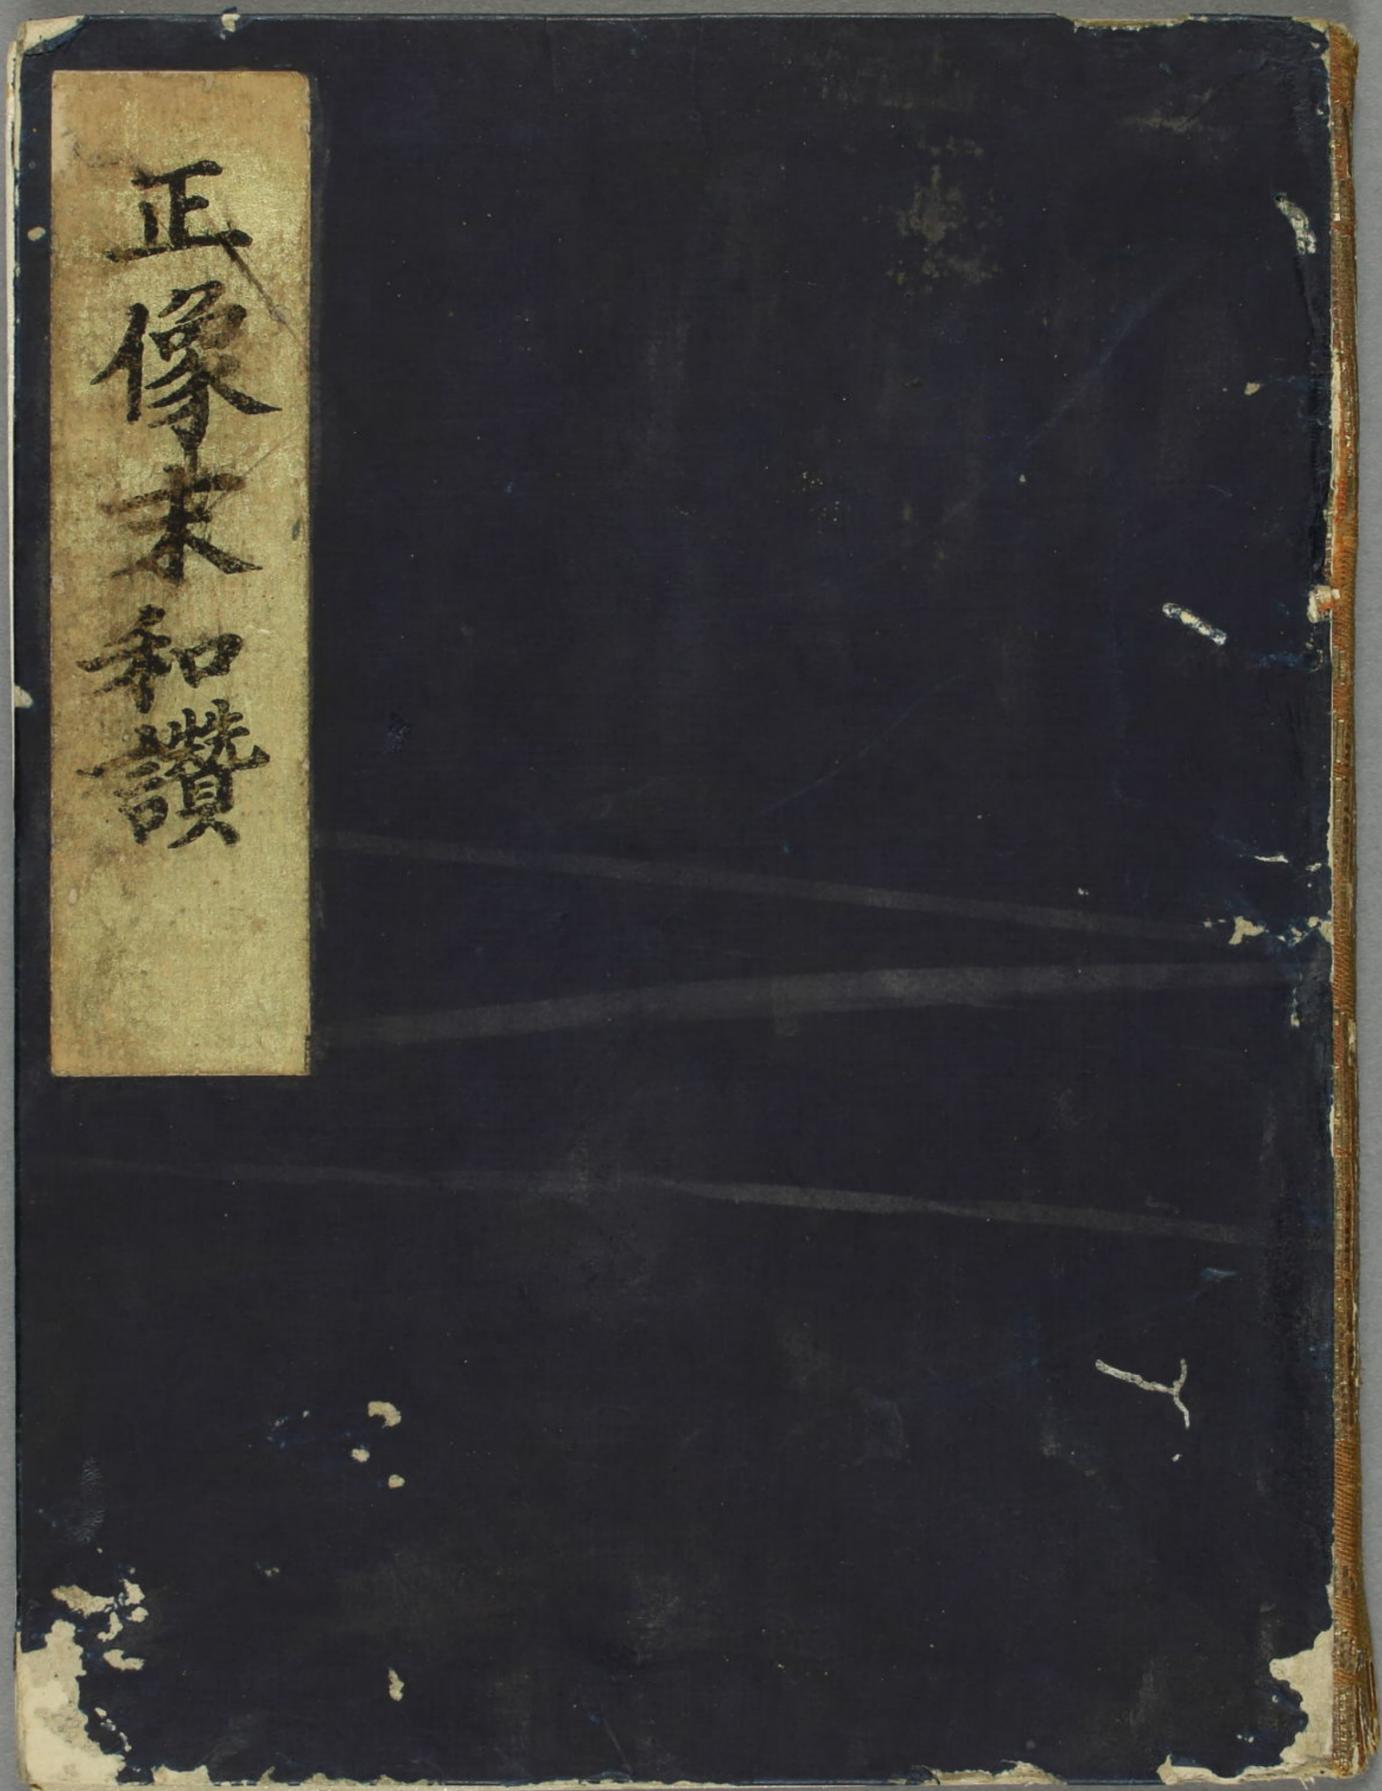 正像末和讃